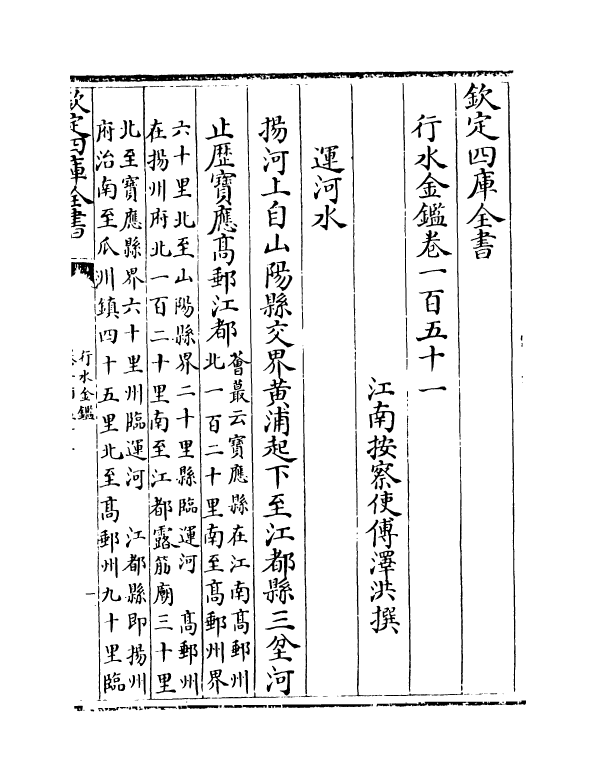 欽定四庫全書
行水金鑑卷一百五十一
江南按察使傅澤洪撰
運河水
揚河上自山陽縣交界黄浦起下至江都縣三㘴河
止歴寶應髙郵江都
薈蕞云寶應縣在江南髙郵州
北一百二十里南至髙郵州界
六十里北至山陽縣界二十里縣臨運河　髙郵州
在揚州府北一百二十里南至江都露筋廟三十里
北至寶應縣界六十里州臨運河　江都縣即揚州
府治南至瓜洲鎮四十五里北至髙郵州九十里臨
欽定四庫全書
行水金鑑